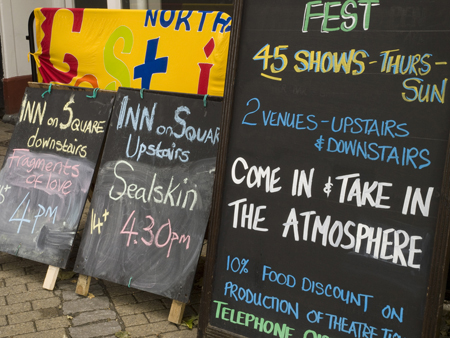 NORTH
Festi
INN on SQUARE
downstairs
Fragments
of love
8+
4 PM
INN on SQUAR
Upstairs
Sealskin
14+
4.30pm
FEST
45 SHOWS - THURS -
SUN
2 VENUES - UPSTAIRS
& DOWNSTAIRS
COME IN & TAKE IN
THE ATMOSPHERE
10% FOOD DISCOUNT ON
PRODUCTION OF THEATRE
TELEPHONE